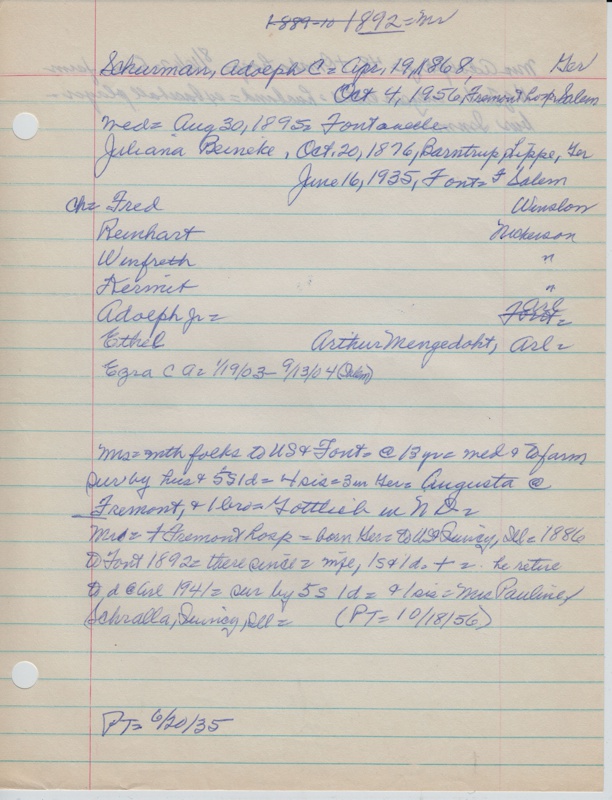 1889-10 1892 = Mr
Schurman, Adolph C = Apr, 19, 1868, Ger
Oct 4, 1956, Fremont hosp Salem
med = Aug 30, 1895 = Fontanelle
Juliana Beineke, Oct. 20, 1876, Barntrup, Lippe, Ger
June 16, 1935, Font = + Salem
ch = Fred Winslow
Reinhart Nickerson
Winfreth "
Kermit "
Adolph Jr = Font = Arl
Ethel Arthur Mengedoht, Arl =
Ezra C A = 1/19/03 - 9/13/04 (Salem)
Mrs = with folks to US & Font = @ 13 yr = med & to farm
sur by hus & 5S 1d = 4 sis = 3 in Ger = Augusta @
Fremont, & 1 bro = Gottlieb in N D =
Mr = + Fremont hosp = born Ger = to US Quincy, Ill = 1886
to Font 1892 = there since = wife, 1s & 1d. + = he retire
to d @ Arl 1941 = sur by 5s 1d = & 1 sis = Mrs Pauline
Schralla, Quincy, Ill = (PT = 10/18/56)
PT = 6/20/35